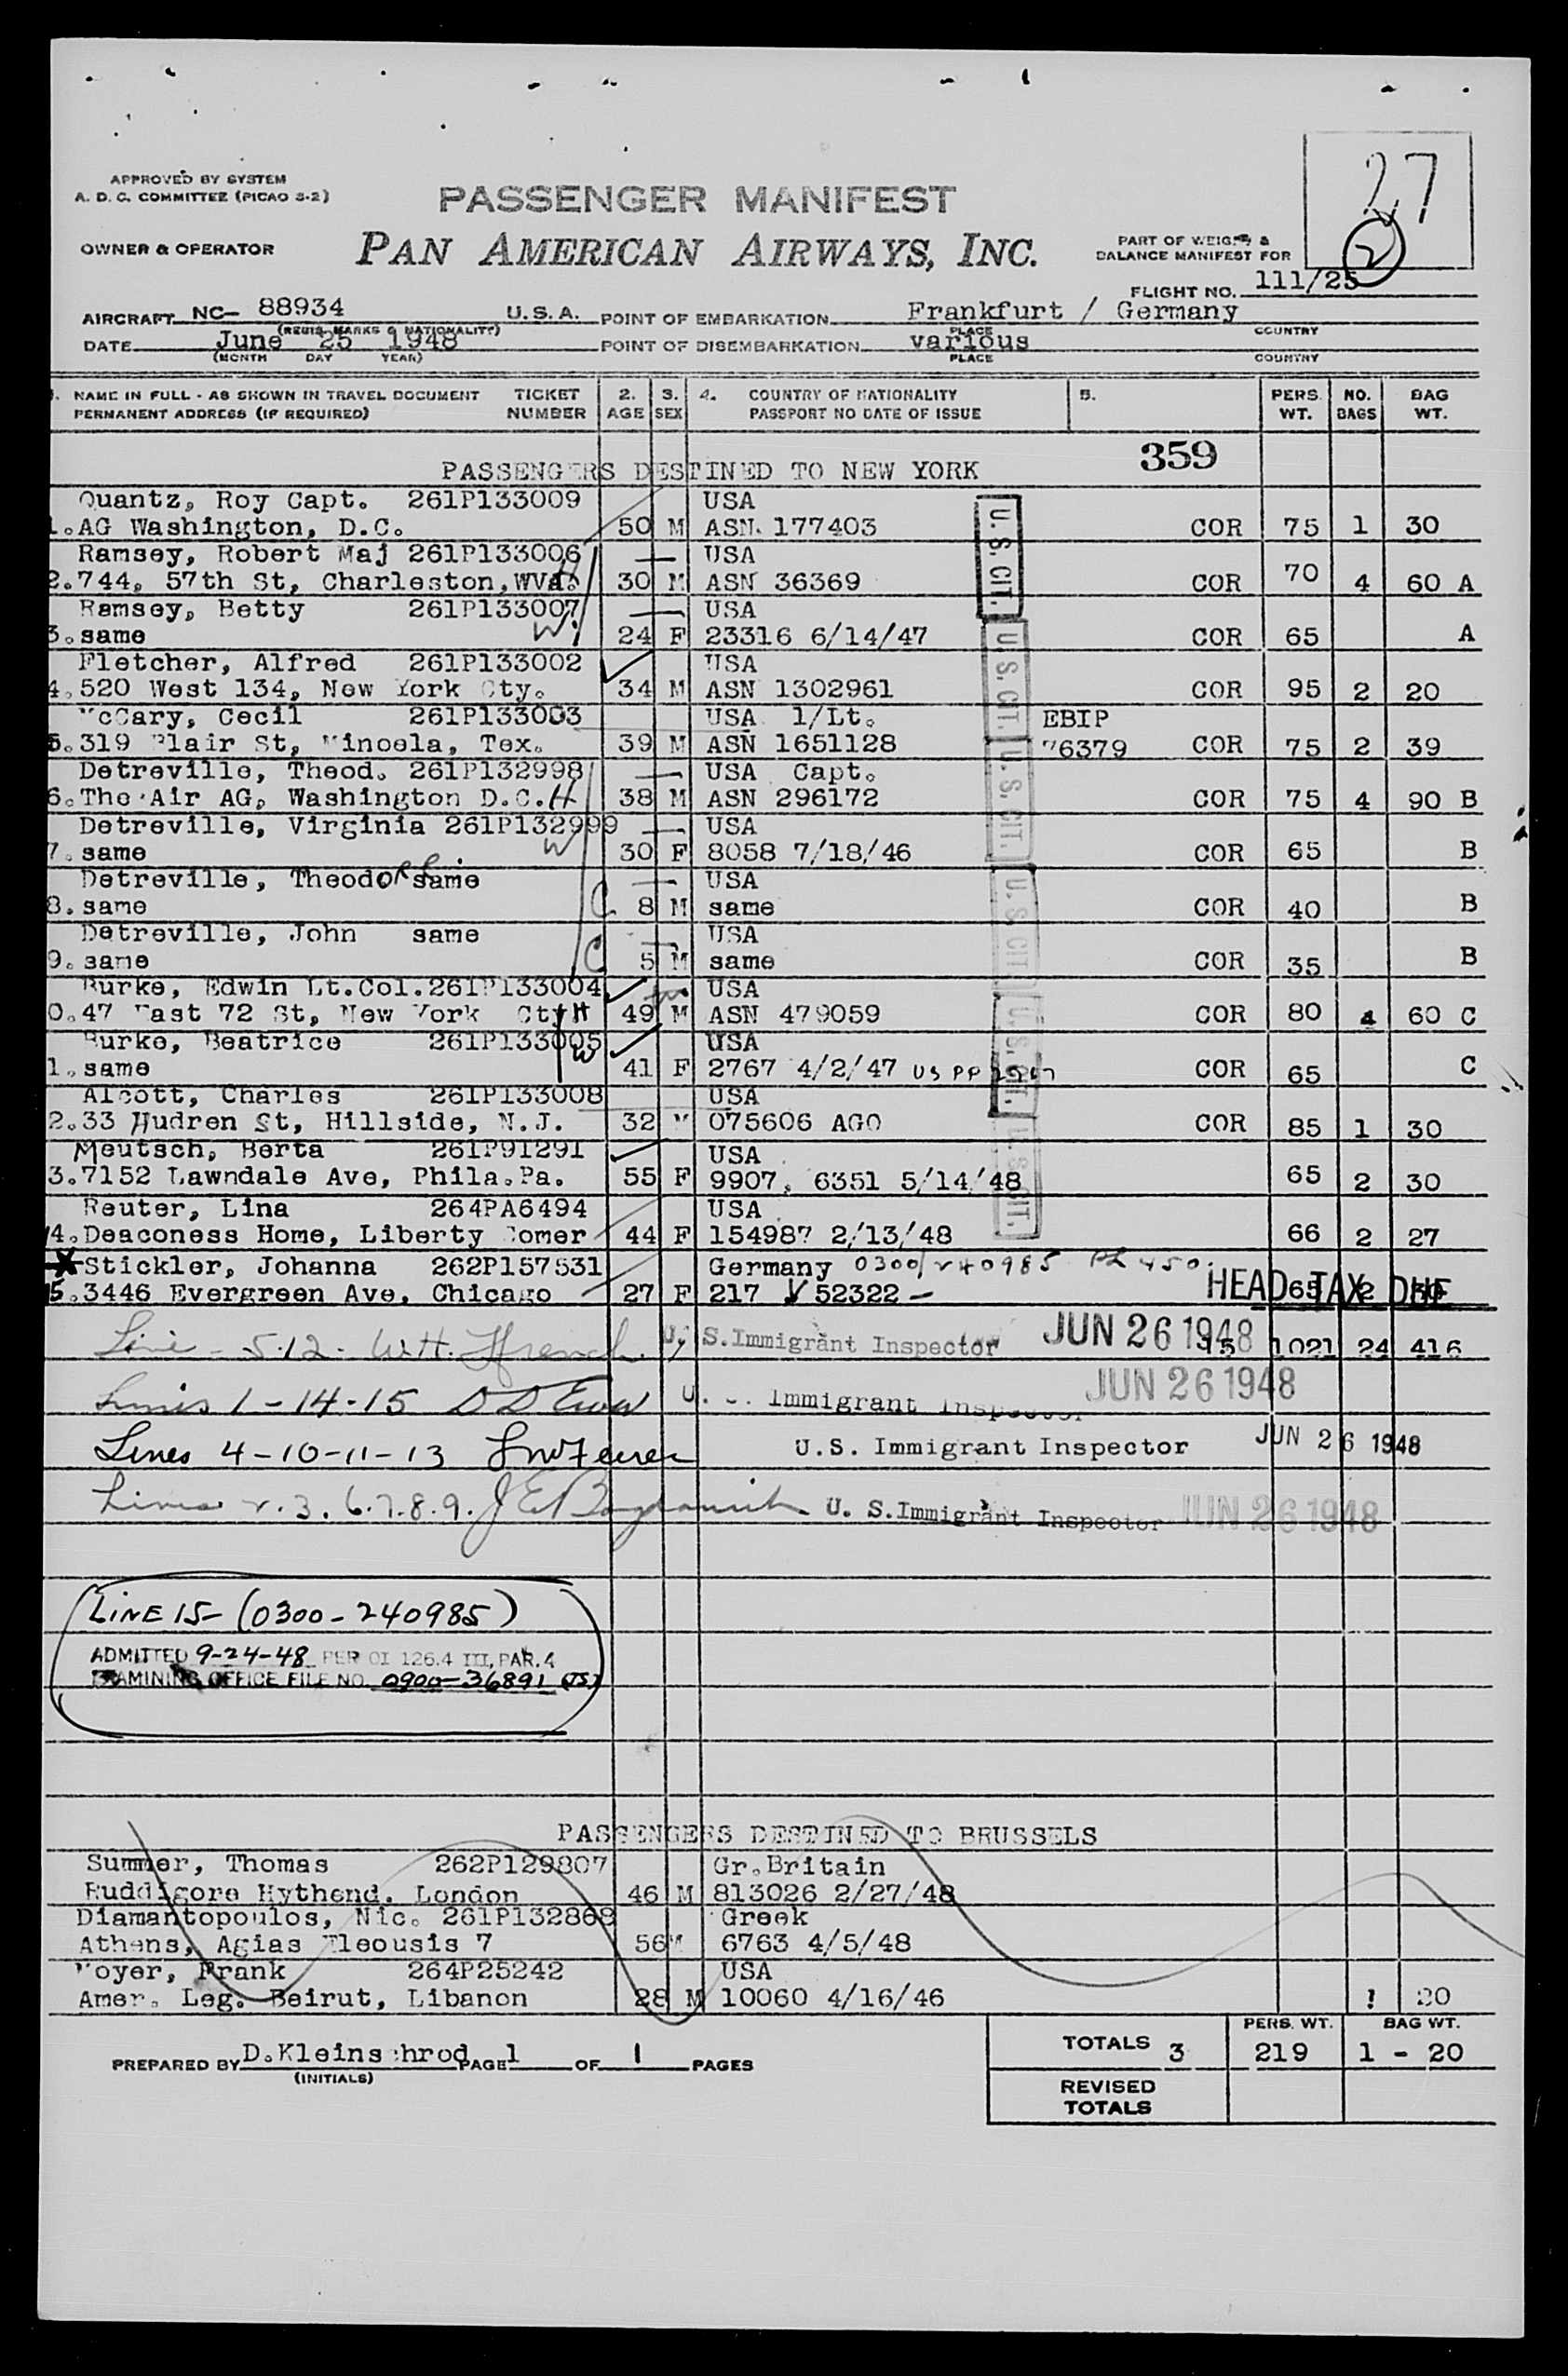 27
2
APPROVED BY SYSTEM
A. D. C. COMMITTEE (PICAO S-2)
PASSENGER MANIFEST
OWNER & OPERATOR
PAN AMERICAN AIRWAYS, INC.
PART OF WEIGHT &
BALANCE MANIFEST FOR
FLIGHT NO. 111/25
AIRCRAFT NC- 88934 U.S.A. POINT OF EMBARKATION Frankfurt / Germany
(REGIS. MARKS & NATIONALITY) PLACE COUNTRY
DATE June 25 1948 POINT OF DISEMBARKATION various
(MONTH DAY YEAR) PLACE COUNTRY
1. NAME IN FULL - AS SHOWN IN TRAVEL DOCUMENT TICKET 2. 3. 4. COUNTRY OF NATIONALITY 5. PERS. NO. BAG
PERMANENT ADDRESS (IF REQUIRED) NUMBER AGE SEX PASSPORT NO DATE OF ISSUE WT. BAGS WT.
359
PASSENGERS DESTINED TO NEW YORK
Quantz, Roy Capt. 261P133009 USA
1. AG Washington, D.C. 50 M ASN. 177403 COR 75 1 30
Ramsey, Robert Maj 261P133006 USA
2. 744, 57th St, Charleston, WVa. H 30 M ASN 36369 COR 70 4 60 A
Ramsey, Betty 261P133007 USA
3. same W. 24 F 23316 6/14/47 COR 65 A
Fletcher, Alfred 261P133002 USA
4. 520 West 134, New York Cty. 34 M ASN 1302961 COR 95 2 20
McCary, Cecil 261P133003 USA 1/Lt. EBIP
5. 319 Blair St, Mineola, Tex. 39 M ASN 1651128 76379 COR 75 2 39
Detreville, Theod. 261P132998 USA Capt.
6. The Air AG, Washington D.C. H 38 M ASN 296172 COR 75 4 90 B
Detreville, Virginia 261P132999 USA
7. same W 30 F 8058 7/18/46 COR 65 B
Detreville, Theodore same USA
8. same C 8 M same COR 40 B
Detreville, John same USA
9. same C 5 M same COR 35 B
Burke, Edwin Lt.Col. 261P133004 USA
0. 47 East 72 St, New York Cty H 49 M ASN 479059 COR 80 4 60 C
Burke, Beatrice 261P133005 USA
1. same W 41 F 2767 4/2/47 US PP COR 65 C
Alcott, Charles 261P133008 USA
2. 33 Hudren St, Hillside, N.J. 32 M 075606 AGO COR 85 1 30
Meutsch, Berta 261P91291 USA
3. 7152 Lawndale Ave, Phila.Pa. 55 F 9907, 6351 5/14/48 65 2 30
Reuter, Lina 264PA6494 USA
4. Deaconess Home, Liberty Comer 44 F 154987 2/13/48 66 2 27
U.S. CIT.
U.S. CIT.
U.S. CIT.
U.S. CIT.
U.S. CIT.
U.S. CIT.
X Stickler, Johanna 262P157531 Germany 0300/240985 PL 450.
5. 3446 Evergreen Ave. Chicago 27 F 217 V 52322 65 2
HEAD TAX DUE
Line - 5.12. W.H. French U. S. Immigrant Inspector JUN 26 1948 15 1021 24 416
Lines 1-14-15 Immigrant Inspector JUN 26 1948
Lines 4-10-11-13 U.S. Immigrant Inspector JUN 26 1948
Lines 2.3.6.7.8.9. U. S. Immigrant Inspector JUN 26 1948
LINE 15- (0300-240985)
ADMITTED 9-24-48 PER OI 126.4 III, PAR. 4
EXAMINING OFFICE FILE NO. 0900-36891 (TS)
PASSENGERS DESTINED TO BRUSSELS
Summer, Thomas 262P129807 Gr.Britain
Ruddigore Hythend. London 46 M 813026 2/27/48
Diamantopoulos, Nic. 261P132868 Greek
Athens, Agias Eleousis 7 56 M 6763 4/5/48
Frank 264P25242 USA
Amer. Leg. Beirut, Libanon 28 M 10060 4/16/46 1 20
PREPARED BY D.Kleinschrod PAGE 1 OF 1 PAGES
(INITIALS)
TOTALS 3 PERS. WT. 219 BAG WT. 1 - 20
REVISED
TOTALS